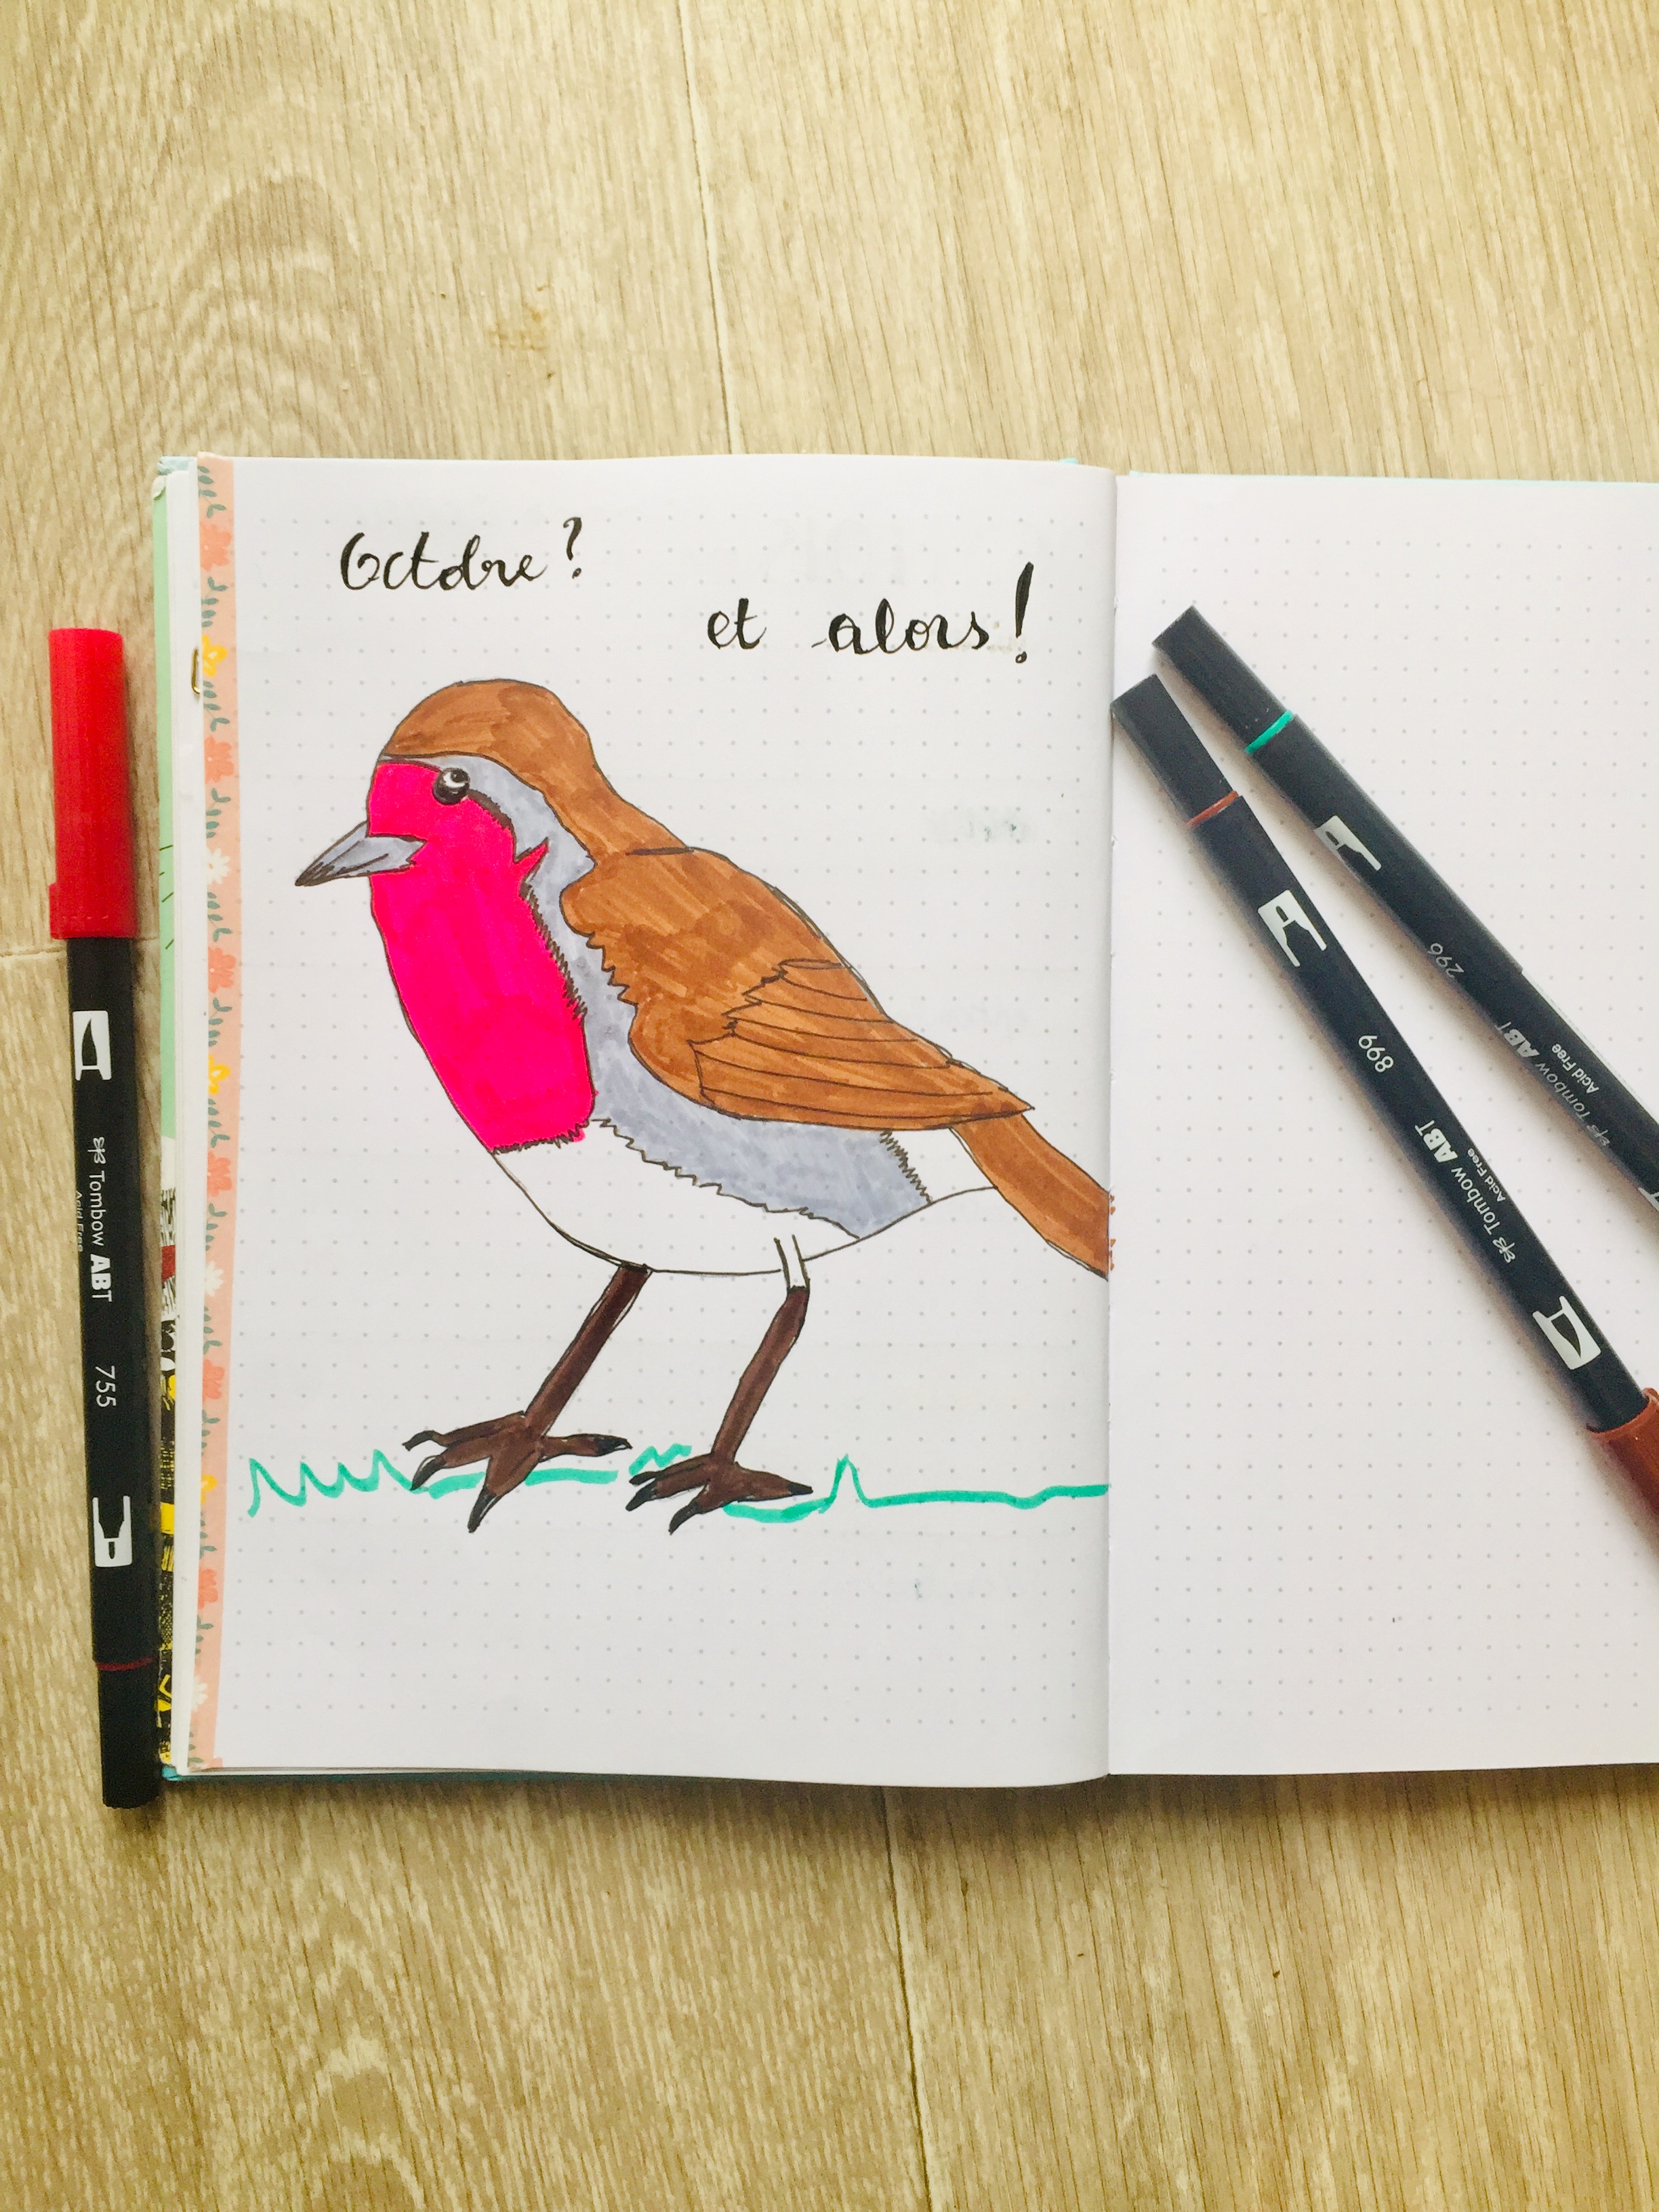 Octobre ?
et alors !
Tombow ABT
Acid Free
755
899
Tombow ABT
Acid Free
296
Tombow ABT
Acid Free